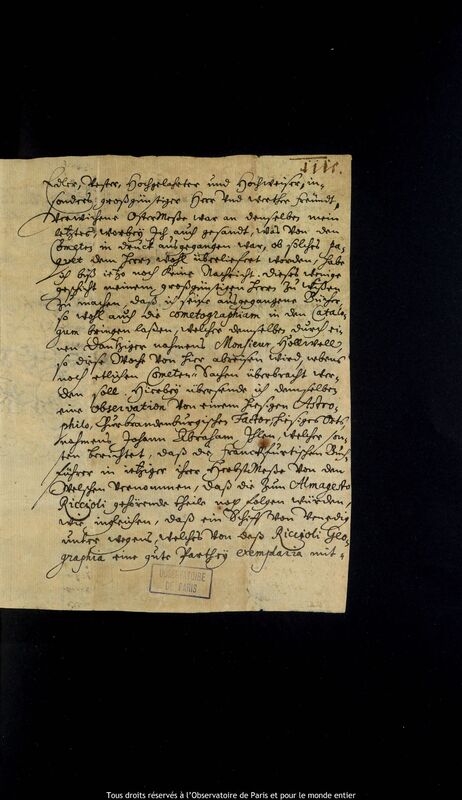 1111.
Edler, Vester, Hochgelahrter und Hochweiser, in-
sonders großgünstiger Herr und werther freündt,
Verwichene OsterMeße war an denselben mein
letztes, worbey Ich auch gesandt, was von den
Cometen in druck ausgegangen war, ob solches pa-
quet dem Herrn wohl überliefert worden, habe
ich biß ietzo noch keine Nachricht. dieses wenige
geschicht meinem großgünstigen Herrn zu wißen
zu machen, daß ich seine ausgegangene Bücher,
so wohl auch die cometographiam in den Catalo-
gum bringen laßen, welcher demselben durch ei-
nen Dantziger nahmens Monsieur Hollwell
so diese Woch von hier abreisen wird, nebens
noch etlichen Cometen Sachen überbracht wer-
den soll. Hierbey übersende ich demselben
eine Observation von einem hiesigen Astro-
philo, Churbrandenburgischer Factor hiesiges Orts
nahmens Johann Abraham Ihlen, welcher son-
sten berichtet, daß die franckfurtischen Buch-
führer in ietziger ihrer HerbstMeße von den
Welschen vernommen, daß die zum Almagesto
Riccioli gehörende theile noch folgen würden,
wie ingleichen, daß ein Schiff von Venedig
unter wegens, welches von deß Riccioli Geo-
graphia eine gute Parthey exemplaria mit-
OBSERVATOIRE
DE PARIS
Tous droits réservés à l'Observatoire de Paris et pour le monde entier